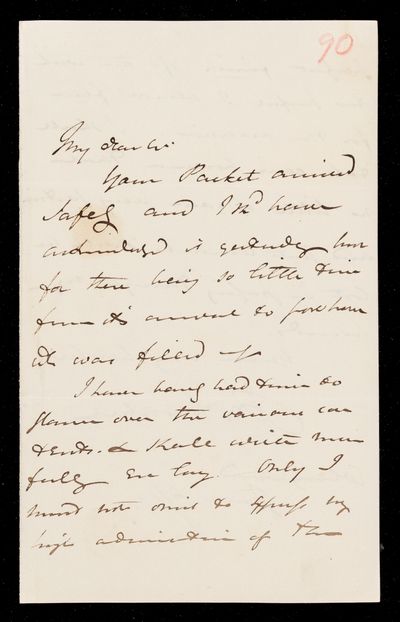 90
My dear W.
Your Packet arrived
safely and I shd. have
acknowledged it yesterday but
for there being so little time
from its arrival to post hour
it was filled up
I have barely had time to
glance over the various con
tents. & shall write more
fully ere long. Only I
must not omit to express my
high admiration of the